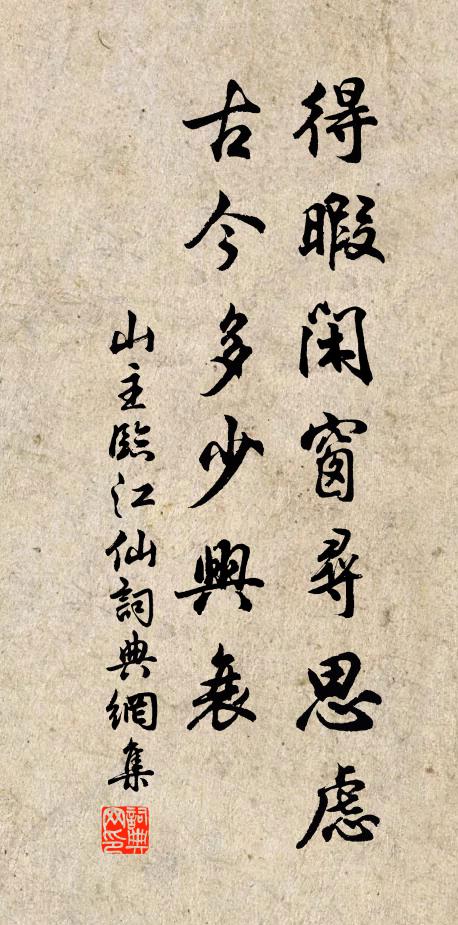 得暇閑窗尋思慮
古今多少興衰
山主臨江仙詞典網集
詞典網印